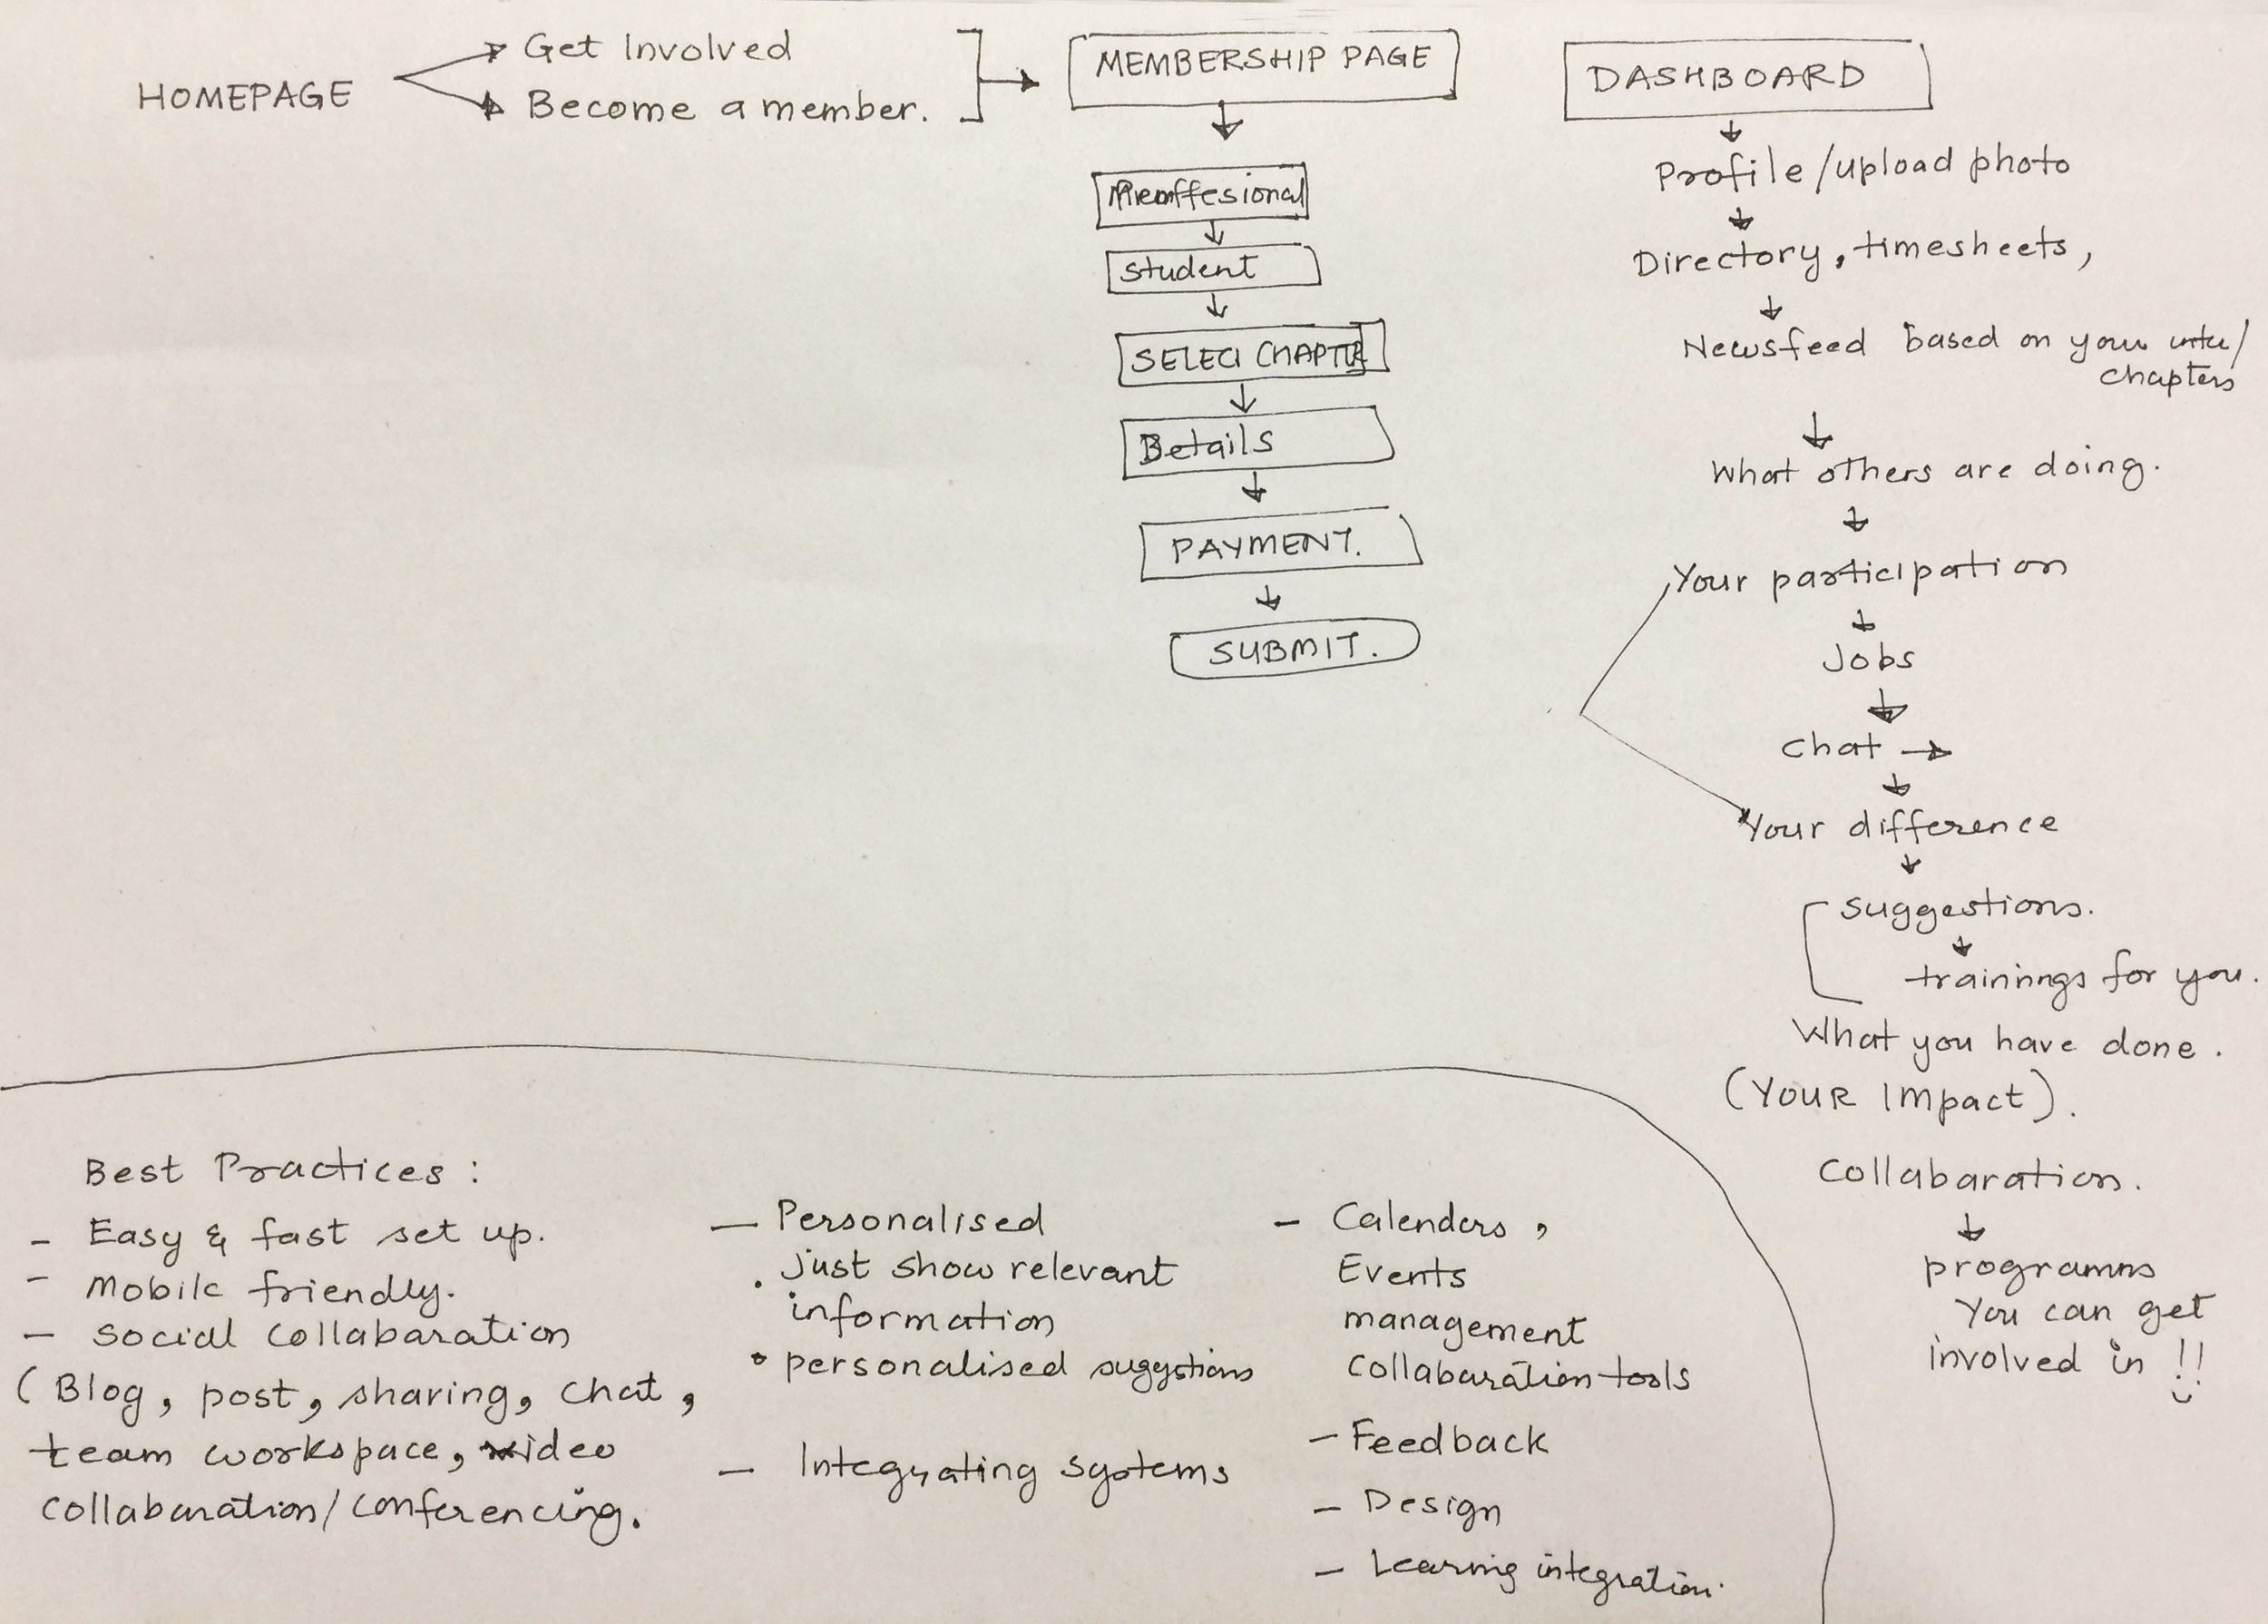 HOMEPAGE
Get Involved
Become a member.
MEMBERSHIP PAGE
Proffesional
student
SELECT CHAPTER
Details
PAYMENT.
SUBMIT.
DASHBOARD
Profile/upload photo
Directory, timesheets,
Newsfeed based on your
chapters
What others are doing.
Your participation
Jobs
Chat
Your difference
suggestions.
trainings for you.
What you have done.
(YOUR Impact).
Collabaration.
programms
You can get
involved in !!
Best Practices :
- Easy & fast set up.
- Mobile friendly.
- Social Collabaration
(Blog, post, sharing, chat,
team workspace, video
collabaration/conferencing.
- Personalised
. Just show relevant
information
• personalised suggstions
- Integrating systems
- Calenders,
Events
management
Collabaration tools
- Feedback
- Design
- Learning integration.